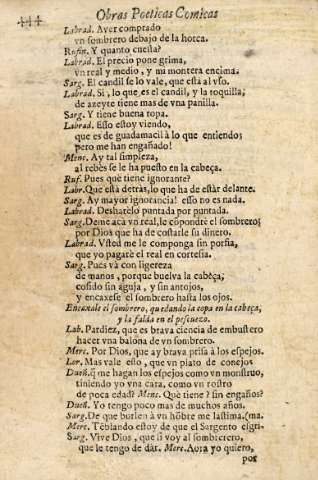 444 Obras Poeticas Comicas
Labrad. Ayer comprado
vn sombrero debajo de la horca.
Rufin. Y quanto cuesta?
Labrad. El precio pone grima,
vn real y medio, y mi montera encima.
Sarg. El candil se lo vale, que està al vso.
Labrad. Si, lo que es el candil, y la rosquilla,
de azeyte tiene mas de vna panilla.
Sarg. Y tiene buena copa.
Labrad. Esso estoy viendo,
que es de guadamacil à lo que entiendo;
pero me han engañado!
Merc. Ay tal simpleza,
al rebès se le ha puesto en la cabeça.
Ruf. Pues què tiene ignorante?
Labr. Que està detràs, lo que ha de estàr delante.
Sarg. Ay mayor ignorancia! esso no es nada.
Labrad. Desharèlo puntada por puntada.
Sarg. Deme acà vn real, le cõpondrè el sombrero;
por Dios que ha de costarle su dinero.
Labrad. Vsted me le componga sin porfia,
que yo pagarè el real en cortesia.
Sarg. Pues và con ligereza
de manos, porque buelva la cabèça;
cosido sin aguja, y sin antojos,
y encaxese el sombrero hasta los ojos.
Encaxale el sombrero, quedando la copa en la cabeça,
y la falda en el pescuezo.
Lab. Pardiez, que es brava ciencia de embustero
hacer vna balona de vn sombrero.
Merc. Por Dios, que ay brava prisa à los espejos.
Lor. Mas vale esto, que vn plato de conejos
Dueñ. q̃ me hagan los espejos como vn monstruo,
tiniendo yo vna cara, como vn rostro
de poca edad? Merc. Què tiene? sin engaños?
Dueñ. Yo tengo poco mas de muchos años.
Sarg. De que burlen à vn hõbre me lastima. (ma.
Merc. Tẽblando estoy de que el Sargento esgri-
Sarg. Vive Dios, que si voy al sombrerero,
que le tengo de dàr. Merc. Aora yo quiero,
por